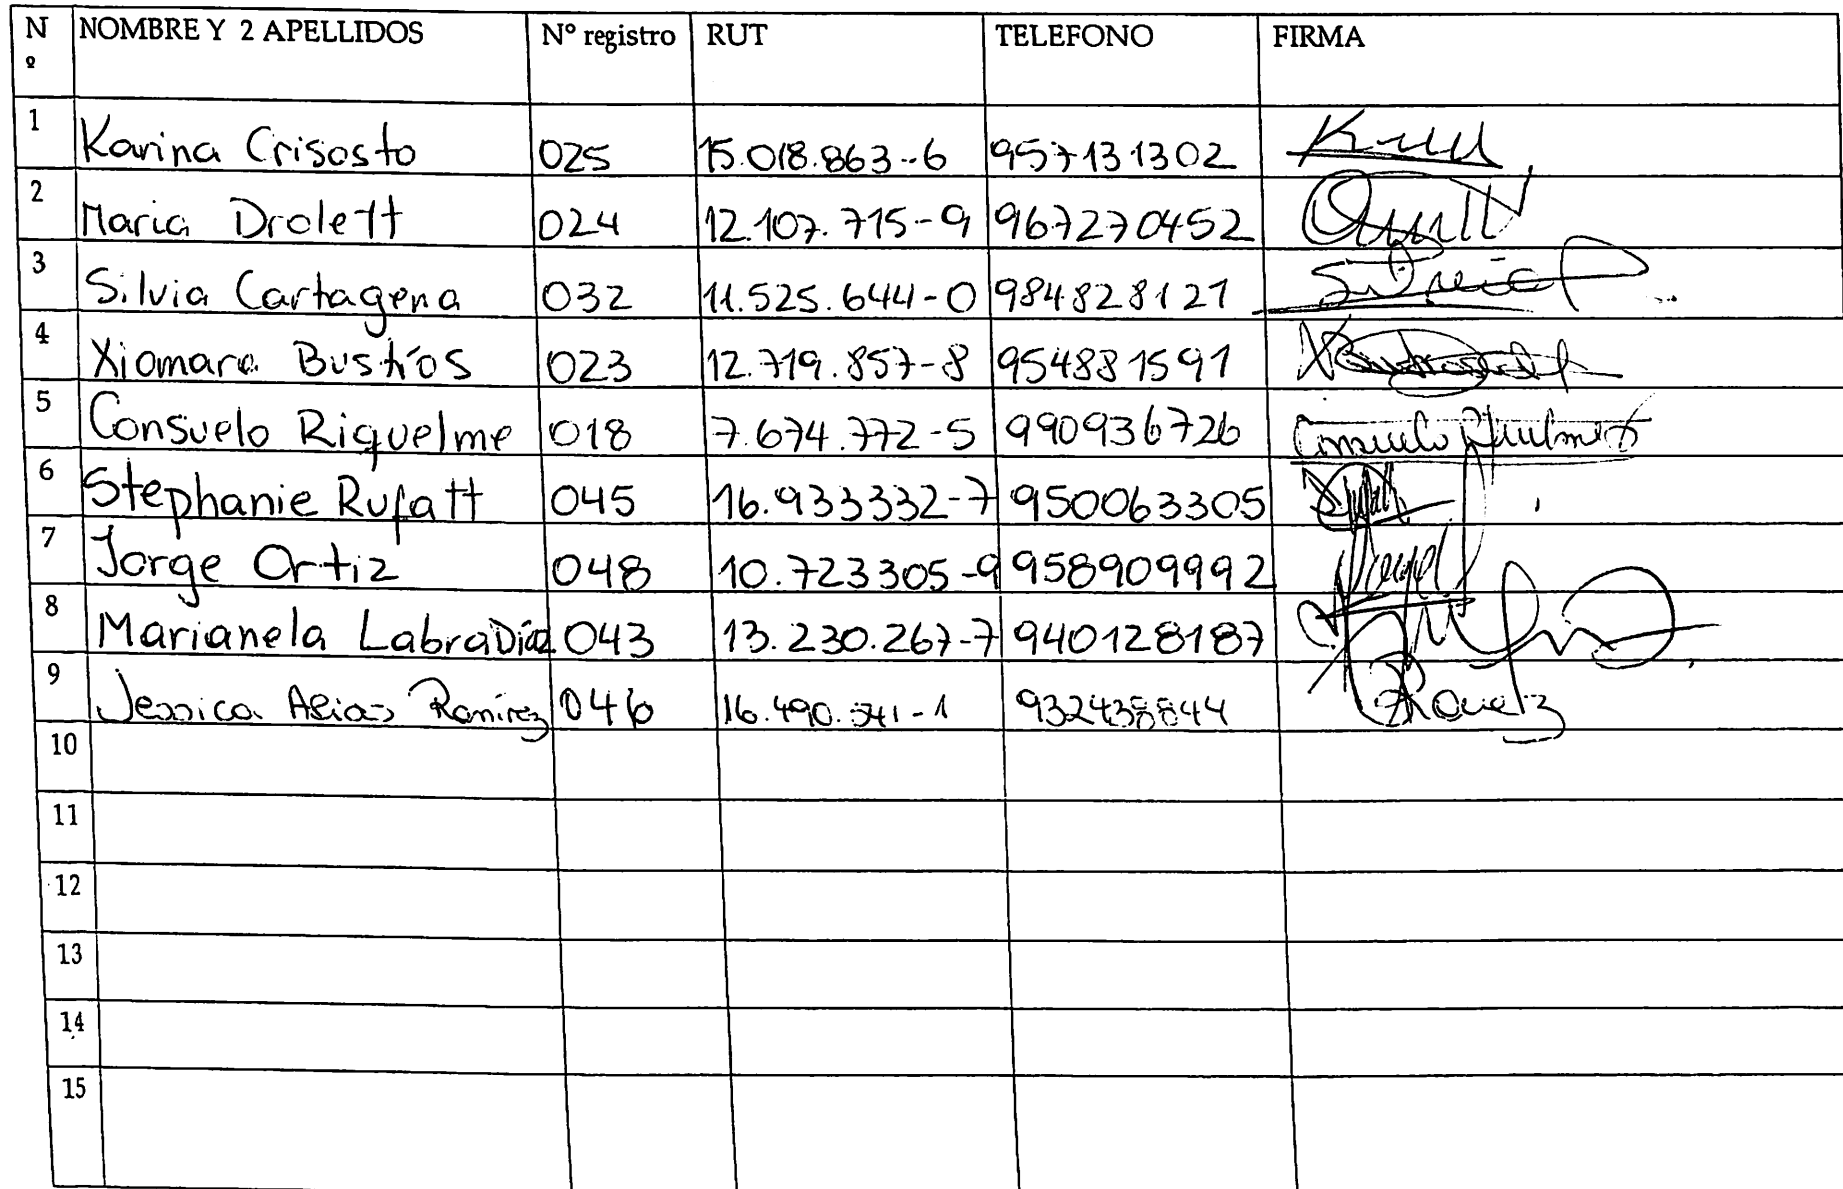 Nº NOMBRE Y 2 APELLIDOS Nº registro RUT TELEFONO FIRMA
1 Karina Crisosto 025 15.018.863-6 957131302
2 Maria Drolett 024 12.107.715-9 967270452
3 Silvia Cartagena 032 11.525.644-0 984828127
4 Xiomara Bustos 023 12.719.857-8 954881591
5 Consuelo Riquelme 018 7.674.772-5 990936726 Consuelo Riquelme
6 Stephanie Rufatt 045 16.933332-7 950063305
7 Jorge Ortiz 048 10.723305-9 958909992
8 Marianela Labra Díaz 043 13.230.267-7 940128187
9 Jessica Arias Ramírez 046 932438844
10
11
12
13
14
15